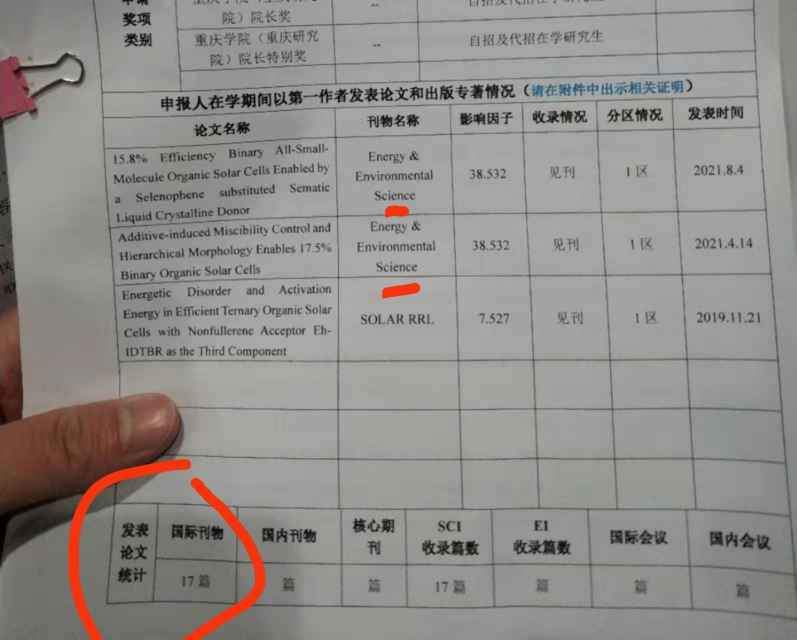 奖项
类别
院）院长奖
--
自招及代招在学研究生
重庆学院（重庆研究
院）院长特别奖
--
自招及代招在学研究生
申报人在学期间以第一作者发表论文和出版专著情况（请在附件中出示相关证明）
论文名称
刊物名称
影响因子
收录情况
分区情况
发表时间
15.8% Efficiency Binary All-Small-
Molecule Organic Solar Cells Enabled by
a Selenophene substituted Sematic
Liquid Crystalline Donor
Energy &
Environmental
Science
38.532
见刊
1 区
2021.8.4
Additive-induced Miscibility Control and
Hierarchical Morphology Enables 17.5%
Binary Organic Solar Cells
Energy &
Environmental
Science
38.532
见刊
1 区
2021.4.14
Energetic Disorder and Activation
Energy in Efficient Ternary Organic Solar
Cells with Nonfullerene Acceptor Eh-
IDTBR as the Third Component
SOLAR RRL
7.527
见刊
1 区
2019.11.21
发表
论文
统计
国际刊物
国内刊物
核心期
刊
SCI
收录篇数
EI
收录篇数
国际会议
国内会议
17 篇
篇
篇
17 篇
篇
篇
篇